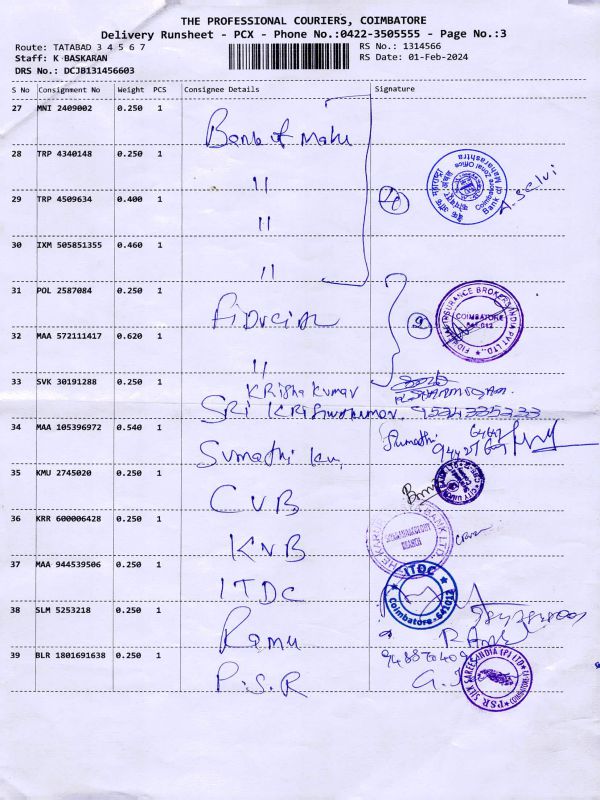 THE PROFESSIONAL COURIERS, COIMBATORE
Delivery Runsheet - PCX - Phone No.:0422-3505555 - Page No.:3
Route: TATABAD 3 4 5 6 7
RS No.: 1314566
Staff: K BASKARAN
RS Date: 01-Feb-2024
DRS No.: DCJB131456603
S No Consignment No Weight PCS Consignee Details Signature
27 MNI 2409002 0.250 1 Bank of Maha
28 TRP 4340148 0.250 1 11
29 TRP 4509634 0.400 1 11
30 IXM 505851355 0.460 1 11
Coimbatore Zonal Office
Bank of Maharashtra
A. Selvi
31 POL 2587084 0.250 1 Fiducian
COIMBATORE
32 MAA 572111417 0.620 1 11
33 SVK 30191288 0.250 1 KRisha kumar
SRI KRISHNAKUMAR. 9534335233
34 MAA 105396972 0.540 1 Sumathi Ku, Sumathi
35 KMU 2745020 0.250 1 CUB
36 KRR 600006428 0.250 1 KVB
BRANCH
37 MAA 944539506 0.250 1 ITDC
ITDC
Coimbatore-641012
38 SLM 5253218 0.250 1 Ramu
39 BLR 1801691638 0.250 1 P.S.R